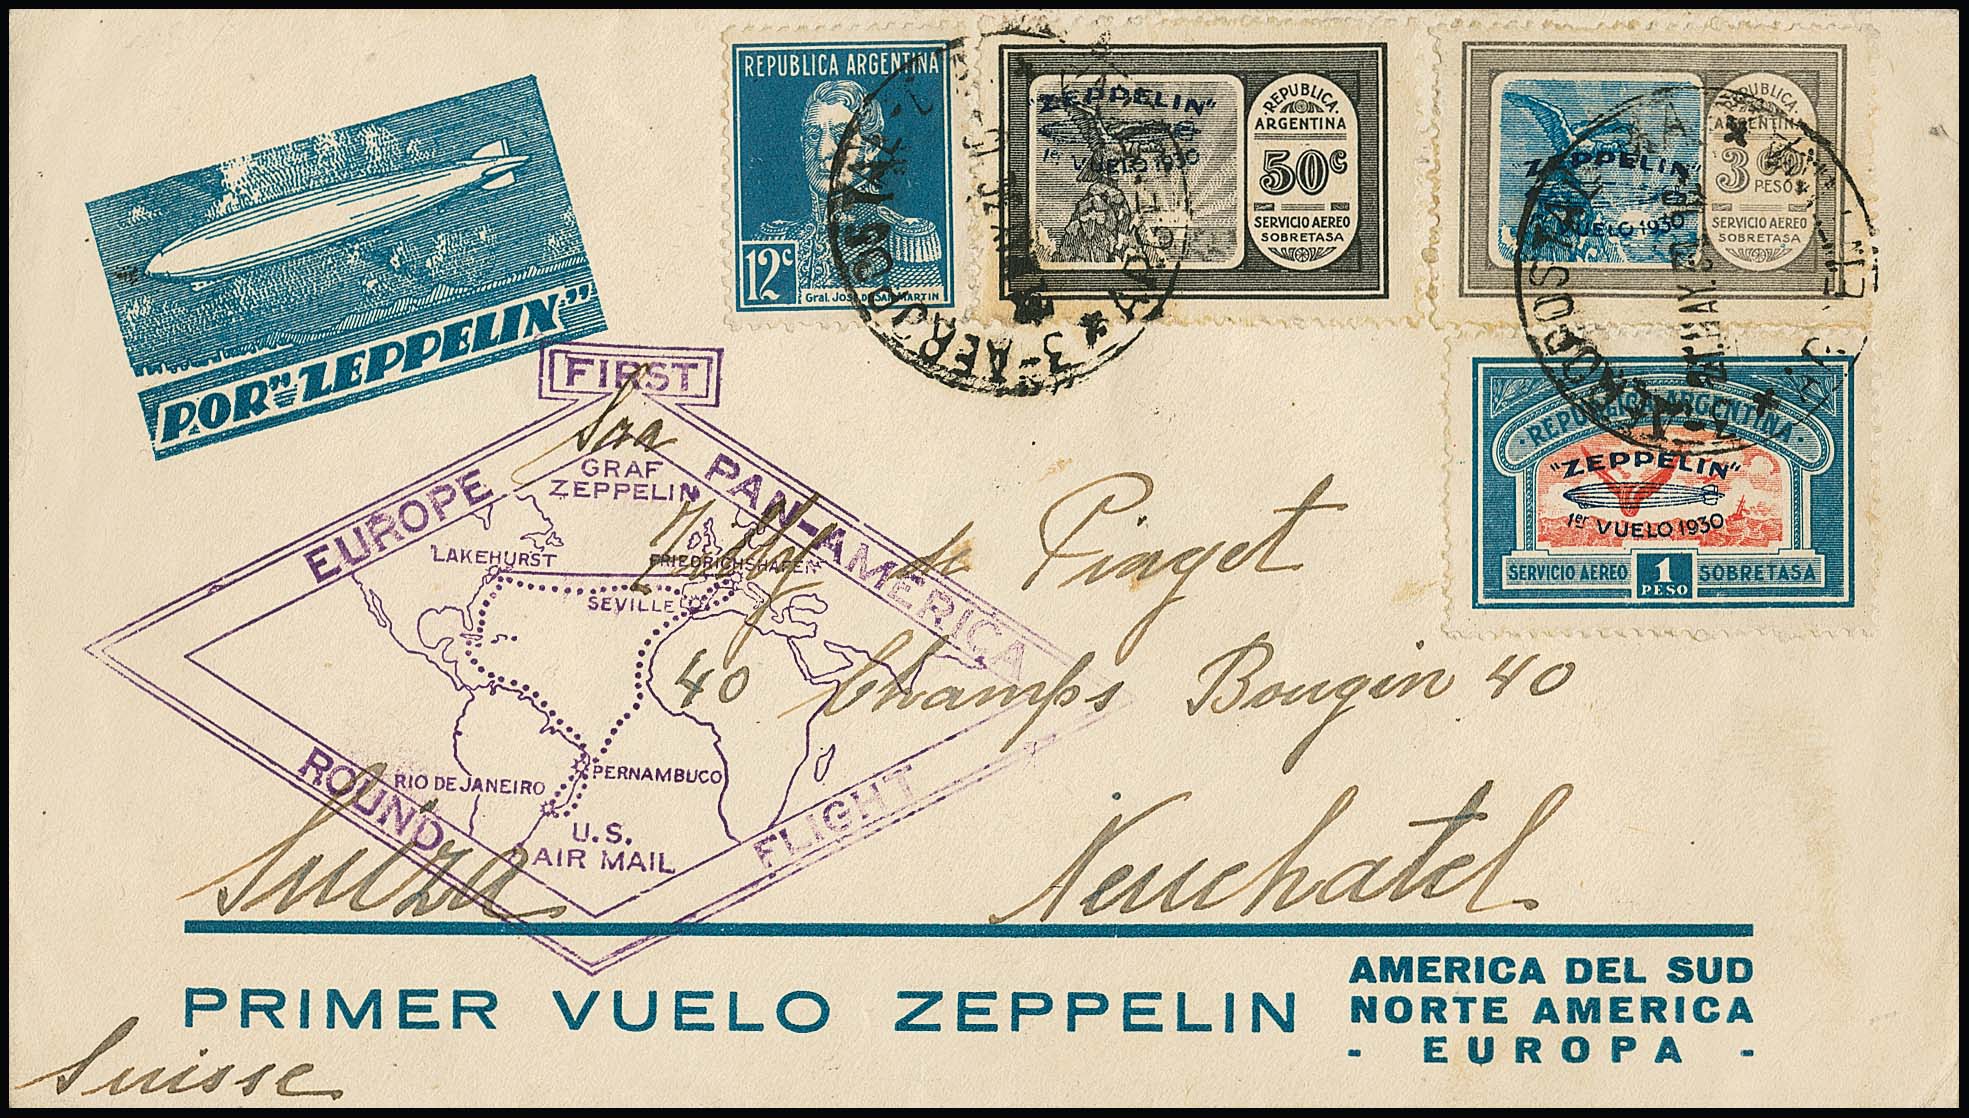 REPUBLICA ARGENTINA
12c
Gral. José de San Martin
"ZEPPELIN"
1er VUELO 1930
REPUBLICA
ARGENTINA
50c
SERVICIO AEREO
SOBRETASA
"ZEPPELIN"
VUELO 1930
REPUBLICA
ARGENTINA
3
PESOS
SERVICIO AEREO
SOBRETASA
REPUBLICA ARGENTINA
"ZEPPELIN"
1er VUELO 1930
SERVICIO AEREO 1 SOBRETASA
PESO
POR "ZEPPELIN"
FIRST
EUROPE PAN-AMERICA
GRAF
ZEPPELIN
LAKEHURST
FRIEDRICHSHAFEN
SEVILLE
RIO DE JANEIRO
PERNAMBUCO
U.S.
AIR MAIL
ROUND FLIGHT
Sra
de Piaget
40 Champs Bougin 40
Neuchatel
Suiza
PRIMER VUELO ZEPPELIN
AMERICA DEL SUD
NORTE AMERICA
- EUROPA -
Suisse